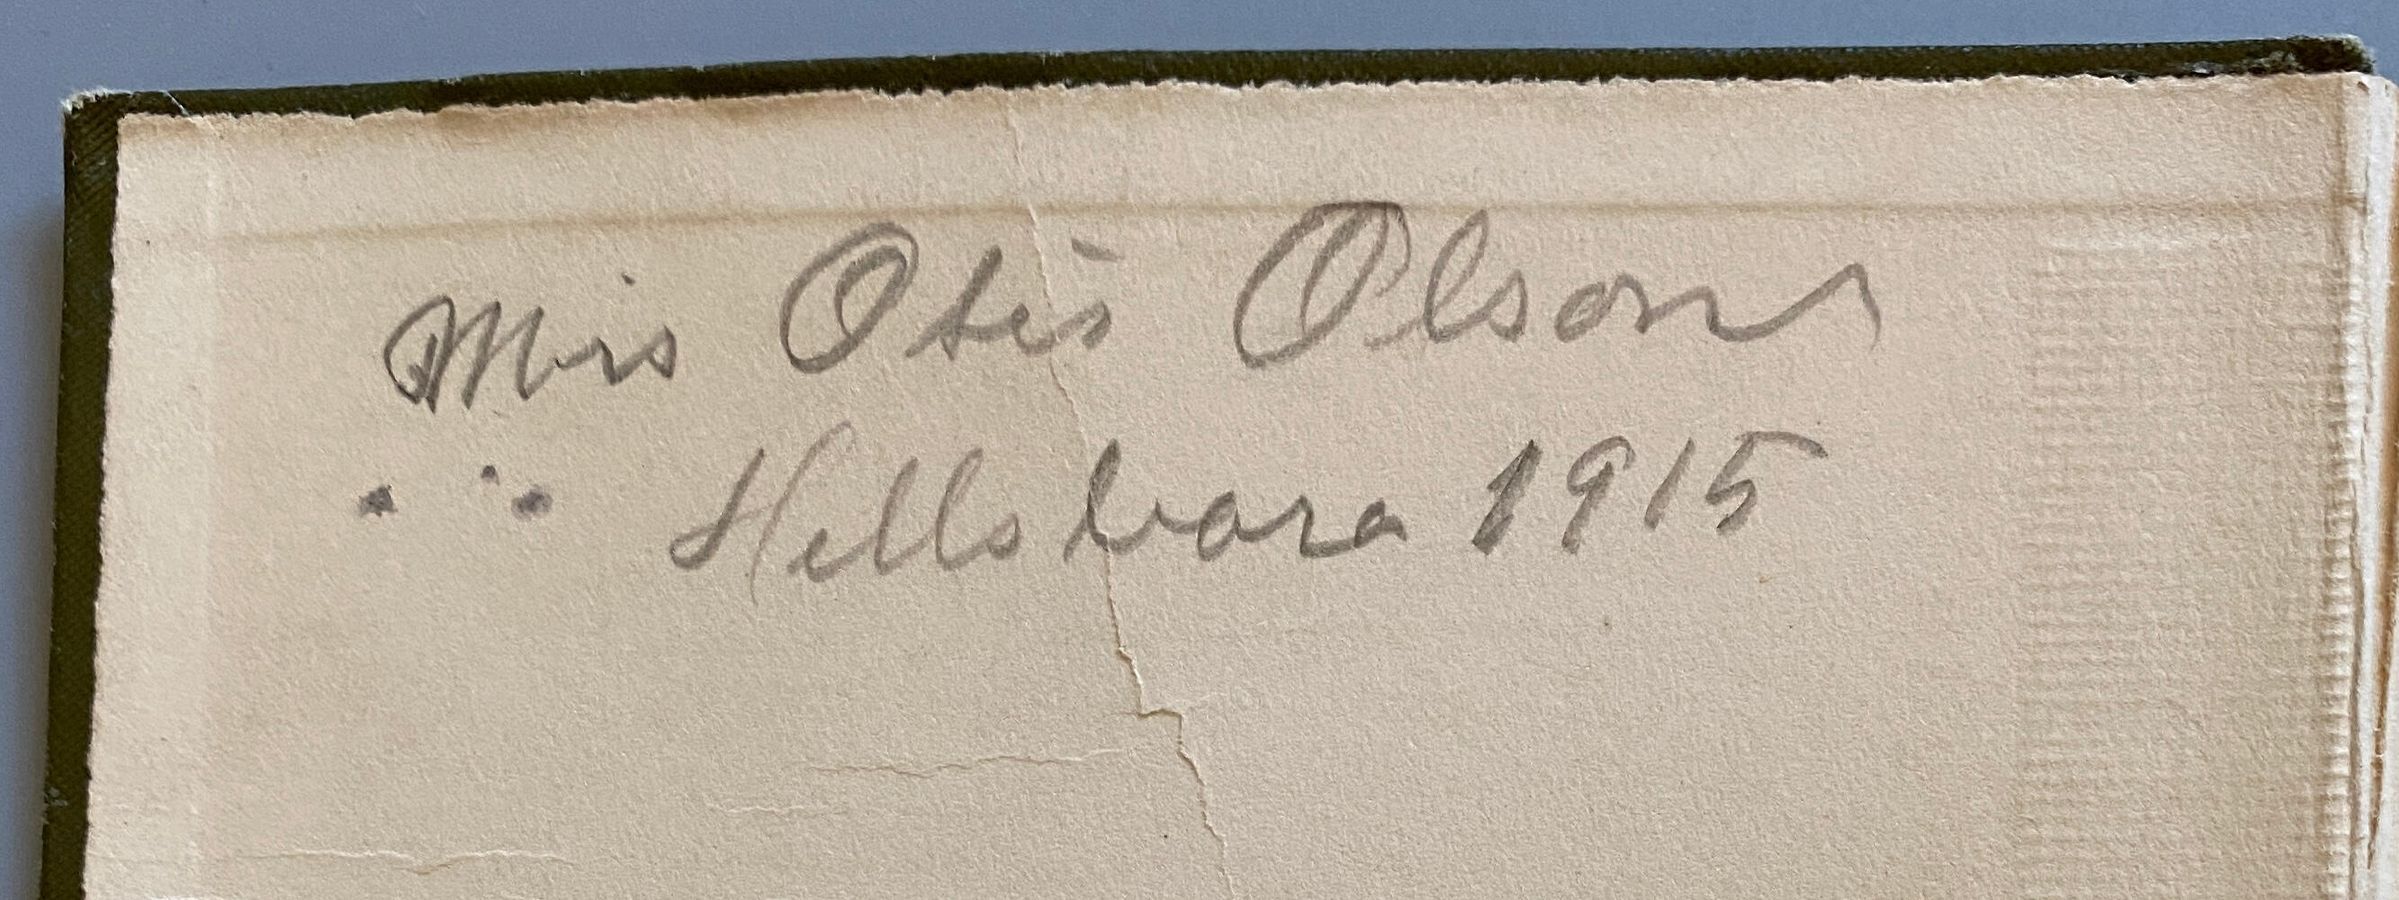 Mrs Otis Olson
Hillsboro 1915